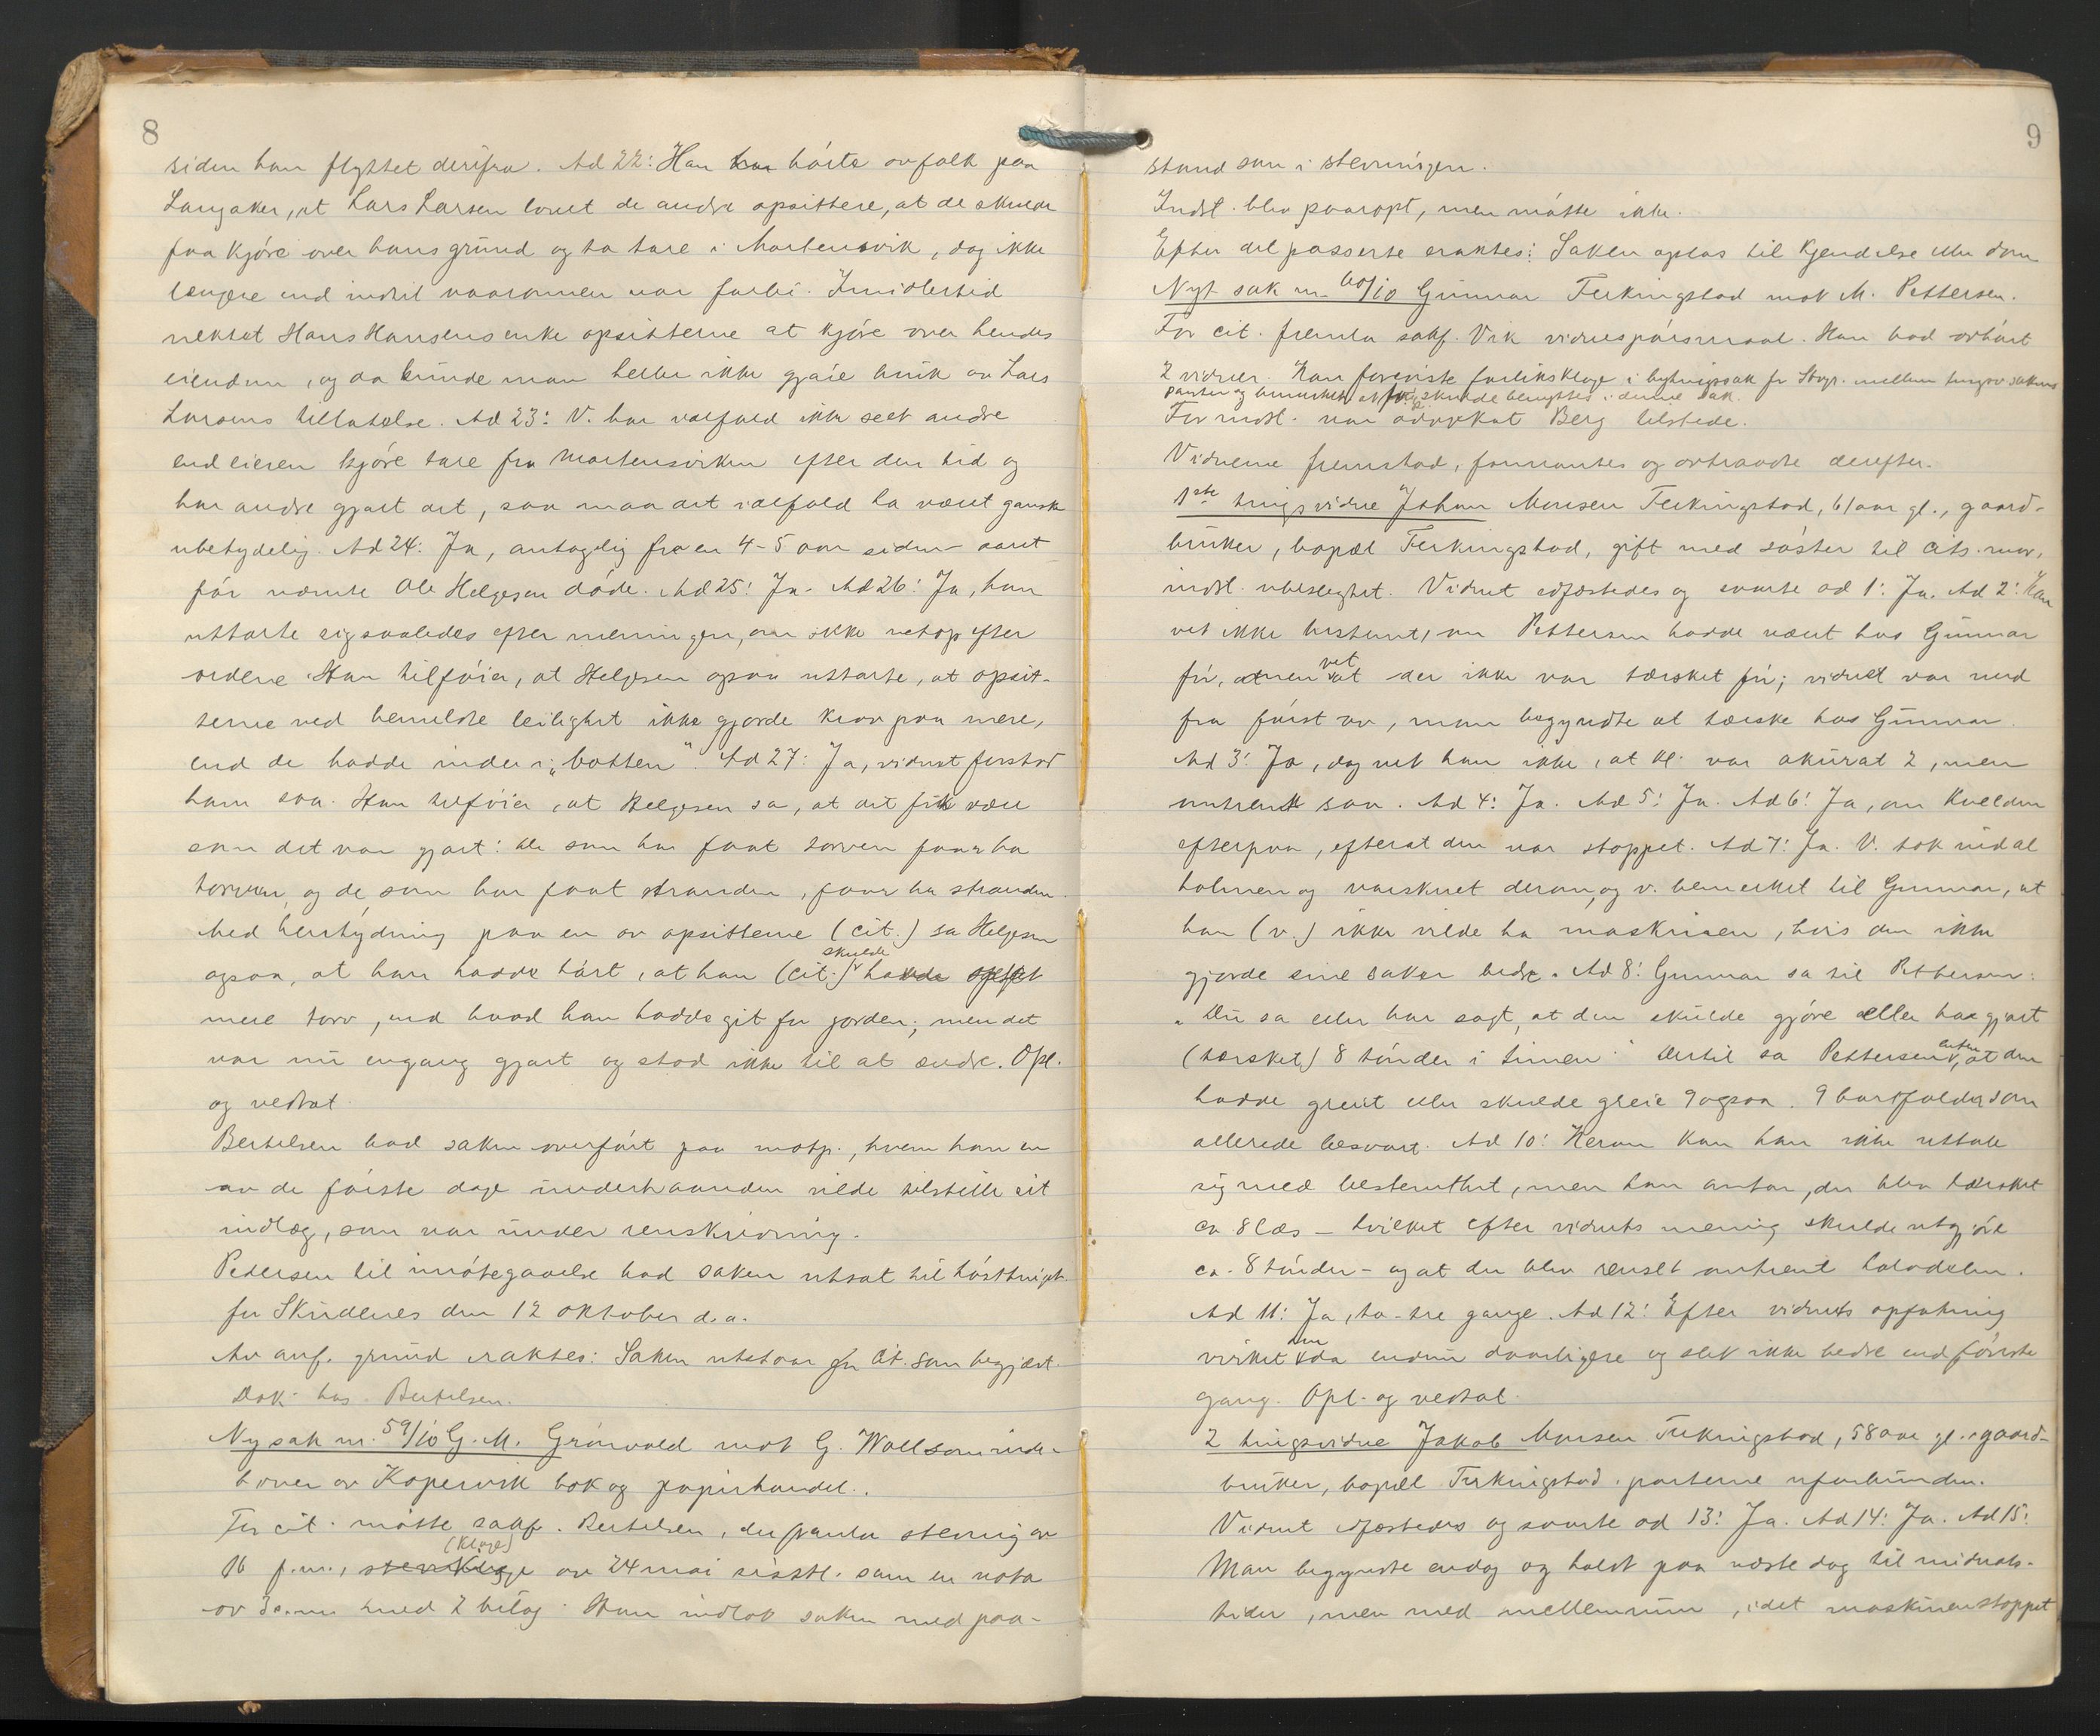 8
siden han flyttet derifra. Ad 22: Han hørte av folk paa
Langaker, at Lars Larsen lovet de andre opsittere, at de skulde
faa kjøre over hans grund og ta tare i Mortensvik, dog ikke
længere end indtil vaaronnen var forbi. Imidlertid
nektet Hans Hansens enke opsitterne at kjøre over hendes
eiendom, og da kunde man heller ikke gjøre bruk av Lars
Larsens tillatelse. Ad 23: V. har ialfald ikke seet andre
end eieren kjøre tare fra Mortensviken efter den tid og
har andre gjort det, saa maa det ialfald ha været ganske
ubetydelig. Ad 24: Ja, antagelig fra en 4-5 aar siden - aaret
før nævnte Ole Helgesen døde. Ad 25: Ja. Ad 26: Ja, han
uttalte sig saaledes efter meningen, om ikke netop efter
ordene. Han tilføier, at Helgesen ogsaa uttalte, at opsit-
terne ved bemeldte leilighet ikke gjorde krav paa mere,
end de hadde inder i "botten". Ad 27: Ja, vidnet forstod
ham saa. Han tilføier, at Helgesen sa, at det fik være
som det var gjort: de som har faat torven faar ha
torven, og de som har faat stranden, faar ha stranden.
Med hentydning paa en av opsitterne (cit.) sa Helgesen
ogsaa, at han hadde hørt, at han (cit.) skulde ha
mere torv, end hvad han hadde git for jorden; men det
var nu engang gjort og stod ikke til at ændre. Opl.
og vedtat.
Bertelsen bad saken overført paa motp., hvem han en
av de første dage underhaanden vilde tilstille sit
indlæg, som var under renskrivning.
Pedersen til imøtegaaelse bad saken utsat til høsttinget
for Skudenes den 12 oktober d.a.
Av anf. grund eraktes: Saken utstaar for cit. som begjært.
Dok. hos Bertelsen.
Ny sak nr. 59/10 G. M. Grønvold mot G. Wall som inde-
haver av Kopervik bok og papirhandel.
For cit. møtte sakf. Bertelsen, der fremla stevning av
16 f.m., (klage) av 24 mai sisstl. samt en nota
av s.m. med 2 bilag. Han indlot saken med paa-
9
stand som i stevningen.
Indst. blev paaropt, men møtte ikke.
Efter det passerte eraktes: Saken optas til kjendelse eller dom
Nyt sak nr. 60/10 Gunnar Ferkingstad mot M. Pettersen.
For cit. fremla sakf. Vik vidnespørsmaal. Han bad avhørt
2 vidner. Han foreviste forliksklage i mellem
parter og bemerket at skulde benyttes i denne sak.
For indst. var advokat Berg tilstede.
Vidnerne fremstod, formantes og avtraadte derefter.
1ste tingsvidne Johan Monsen Ferkingstad, 61 aar gl., gaard-
bruker, bopæl Ferkingstad, gift med søster til cits. mor,
indst. ubeslegtet. Vidnet edfæstedes og svarte ad 1: Ja. Ad 2: Han
vet ikke bestemt, om Pettersen hadde været hos Gunnar
før, men vet at der ikke var tærsket før; vidnet var med
fra først av, man begyndte at tærske hos Gunnar.
Ad 3: Ja, dog vet han ikke, at kl. var akurat 2, men
omtrent saa. Ad 4: Ja. Ad 5: Ja. Ad 6: Ja, om kvelden
efterpaa, efterat den var stoppet. Ad 7: Ja. V. tok ind at
halmen og varskuet derom, og v. bemerket til Gunnar, at
han (v.) ikke vilde ha maskinen, hvis den ikke
gjorde sine saker bedre. Ad 8: Gunnar sa til Pettersen:
"Du sa eller har sagt, at den skulde gjøre eller har gjort
(tærsket) 8 tønder i timen." Dertil sa Pettersen, at den
hadde greiet eller skulde greie 9 ogsaa. 9 bortfalder som
allerede besvart. Ad 10: Herom kan han ikke uttale
sig med bestemthet, men han antar, der blev tærsket
ca. 8 læs - hvilket efter vidnets mening skulde utgjøre
ca. 8 tønder - og at der blev renset omtrent halvdelen.
Ad 11: Ja, to-tre gange. Ad 12: Efter vidnets opfatning
virket den da endnu daarligere og slet ikke bedre end første
gang. Opl. og vedtat.
2 tingsvidne Jakob Monsen Ferkingstad, 58 aar gl., gaard-
bruker, bopæl Ferkingstad, parterne uforbunden.
Vidnet edfæstedes og svarte ad 13: Ja. Ad 14: Ja. Ad 15:
Man begyndte endog og holdt paa næste dag til middags-
tider, men med mellemrum, idet maskinen stoppet